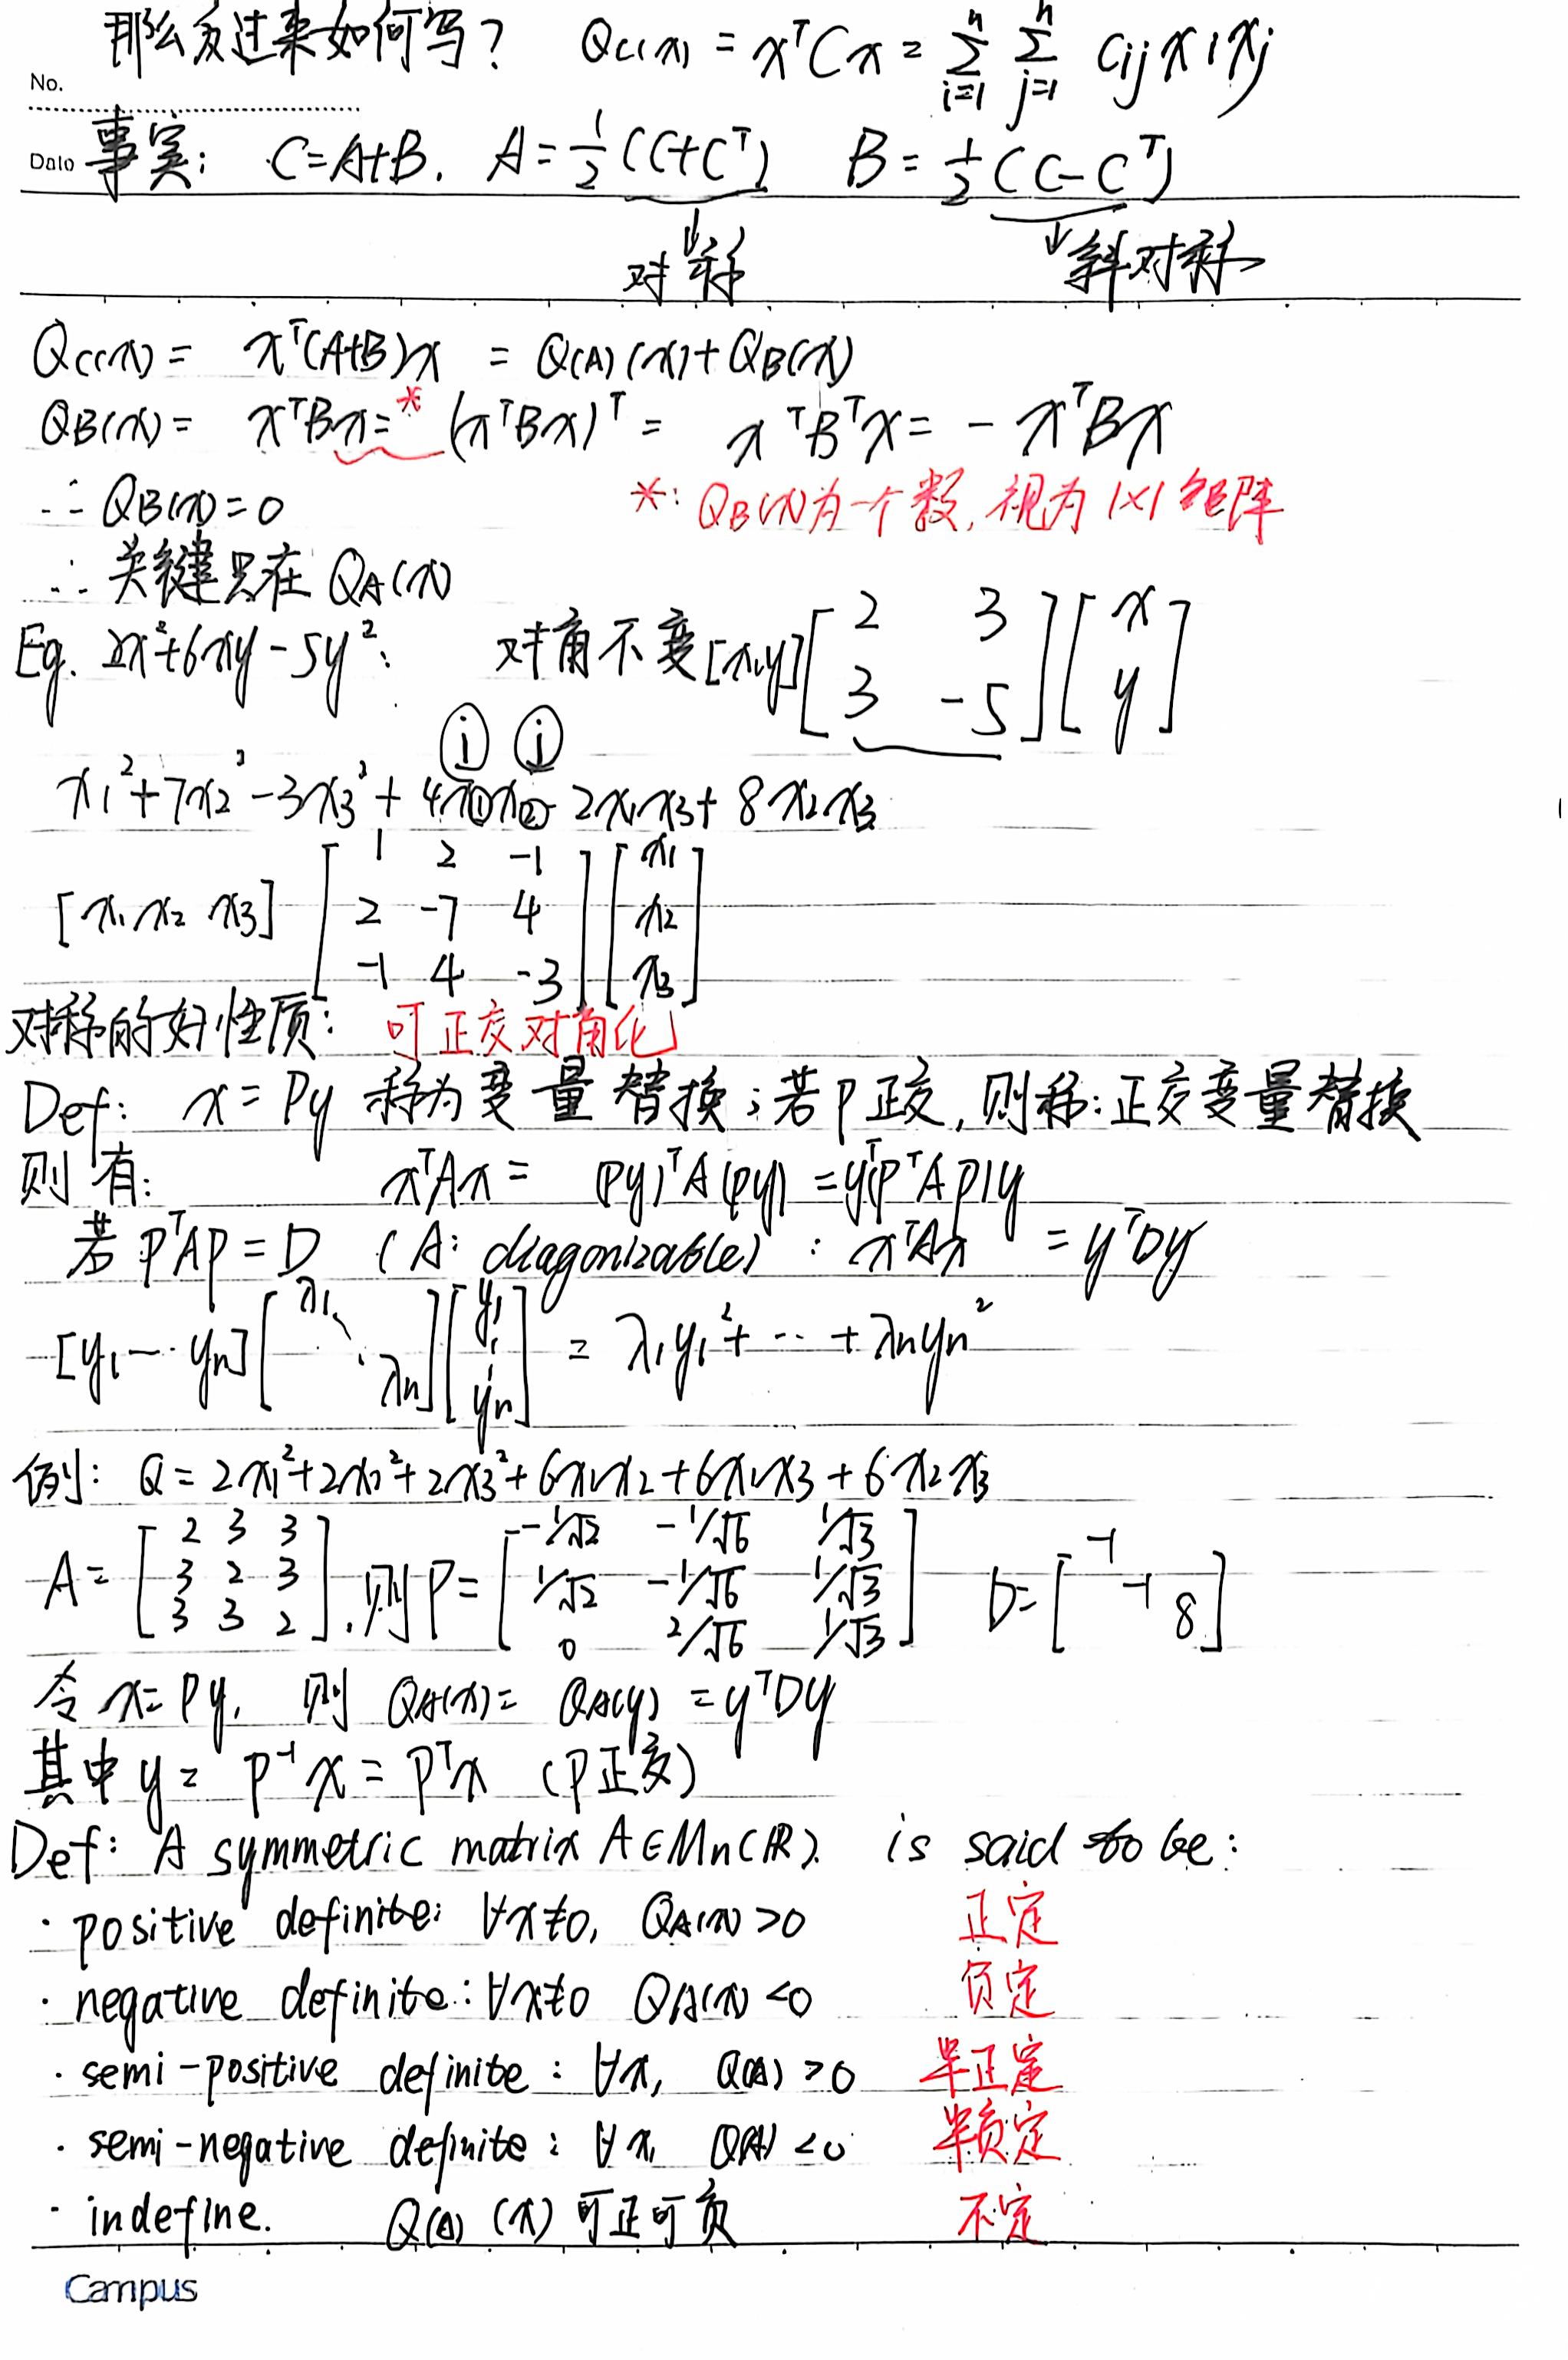 那么反过来如何写? Qc(x) = xᵀCx = Σ_{i=1}^{n} Σ_{j=1}^{n} cij xi xj
No.
Date 事实: C=A+B. A=1/2(C+Cᵀ) B=1/2(C-Cᵀ)
↓对称 ↓斜对称
Qc(x) = xᵀ(A+B)x = Q(A)(x)+QB(x)
QB(x) = xᵀBx =* (xᵀBx)ᵀ = xᵀBᵀx = - xᵀBx
∴ QB(x)=0 *: QB(x)为一个数, 视为1×1矩阵
∴ 关键只在 QA(x)
Eg. 2x²+6xy-5y²: 对角不变 [x,y] [2 3; 3 -5] [x; y]
ⓘ ⓙ
x1²+7x2²-3x3²+4x①x②-2x1x3+8x2x3
[x1 x2 x3] [1 2 -1; 2 -7 4; -1 4 -3] [x1; x2; x3]
对称的好性质: 可正交对角化
Def: x=Py 称为变量替换; 若P正交, 则称: 正交变量替换
则有: xᵀAx = (Py)ᵀA(Py) = yᵀ(PᵀAP)y
若 PᵀAP=D (A: diagonizable) : xᵀAx = yᵀDy
[y1 … yn] [λ1 ⋱ λn] [y1 ⋮ yn] = λ1y1²+…+λnyn²
例: Q=2x1²+2x2²+2x3²+6x1x2+6x1x3+6x2x3
A=[2 3 3; 3 2 3; 3 3 2], 则P=[-1/√2 -1/√6 1/√3; 1/√2 -1/√6 1/√3; 0 2/√6 1/√3] D=[-1 -1 8]
令 x=Py, 则 QA(x)= QA(y) = yᵀDy
其中 y= P⁻¹x = Pᵀx (P正交)
Def: A symmetric matrix A∈Mn(ℝ). is said to be:
· positive definite: ∀x≠0, QA(x)>0 正定
· negative definite: ∀x≠0 QA(x)<0 负定
· semi-positive definite: ∀x, Q(A)>0 半正定
· semi-negative definite: ∀x, Q(A)<0 半负定
· indefine. Q(A)(x)可正可负 不定
Campus